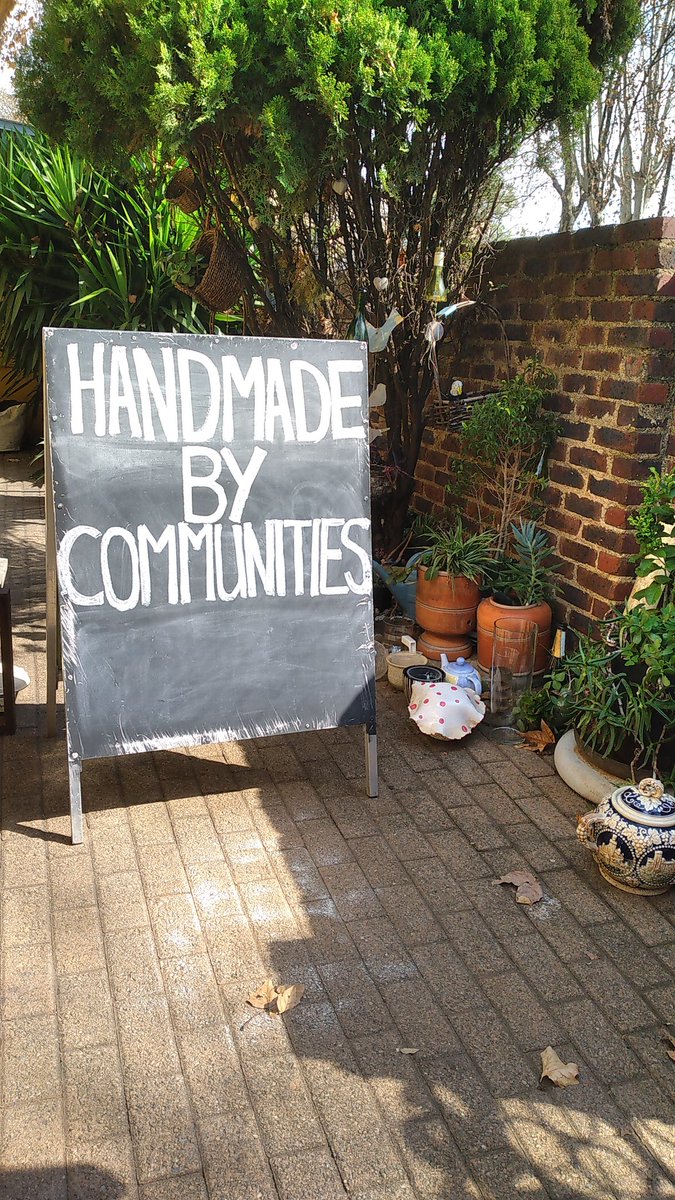 HANDMADE
BY
COMMUNITIES